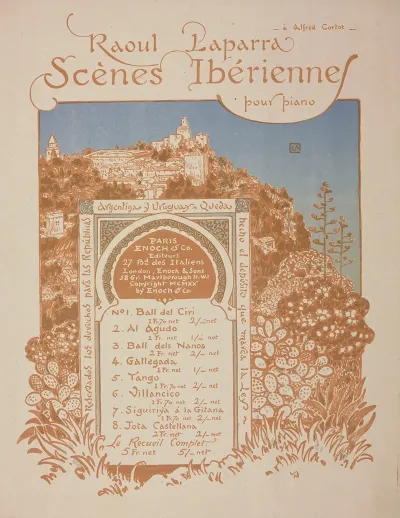 à Alfred Cortot
Raoul Laparra
Scènes Ibériennes
pour piano
Argentina y Uruguay Queda
Reservados los derechos para las Repúblicas
hecho el depósito que marca la Ley
PARIS
ENOCH & Co.
Editeurs
27 Bd. des Italiens
London, Enoch & Sons
58 Gt. Marlborough St. W.1
Copyright MCMXX
by Enoch & Co
No1. Ball del Ciri
1 Fr.70 net 2/- net
2. Al Agudo
2 Fr. net 1/- net
3. Ball dels Nanos
2 Fr. net 2/- net
4. Gallegada
1 Fr. net 1/- net
5. Tango
1 Fr.70 net 2/- net
6. Villancico
1 Fr.70 net 2/- net
7. Siguiriya á la Gitana
1 Fr.70 net 2/- net
8. Jota Castellana
2 Fr. net 2/- net
Le Recueil Complet
5 Fr. net 5/- net